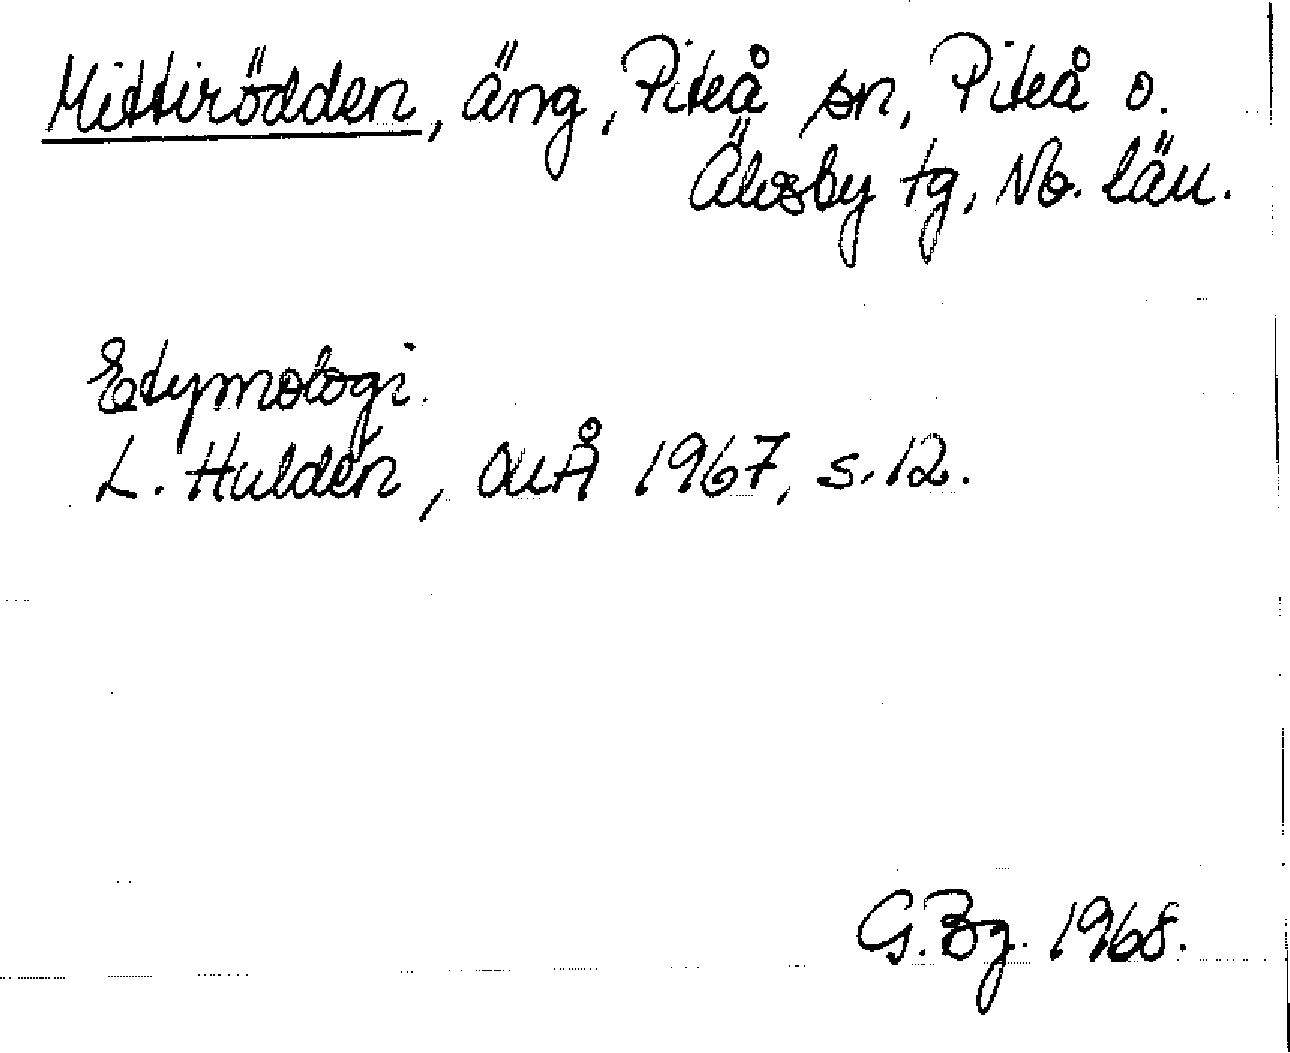 Mittirödden, äng, Piteå sn, Piteå o.
Älvsby tg, Nb. län.
Etymologi.
L. Huldén, OUÅ 1967, s. 12.
G.Bg. 1968.